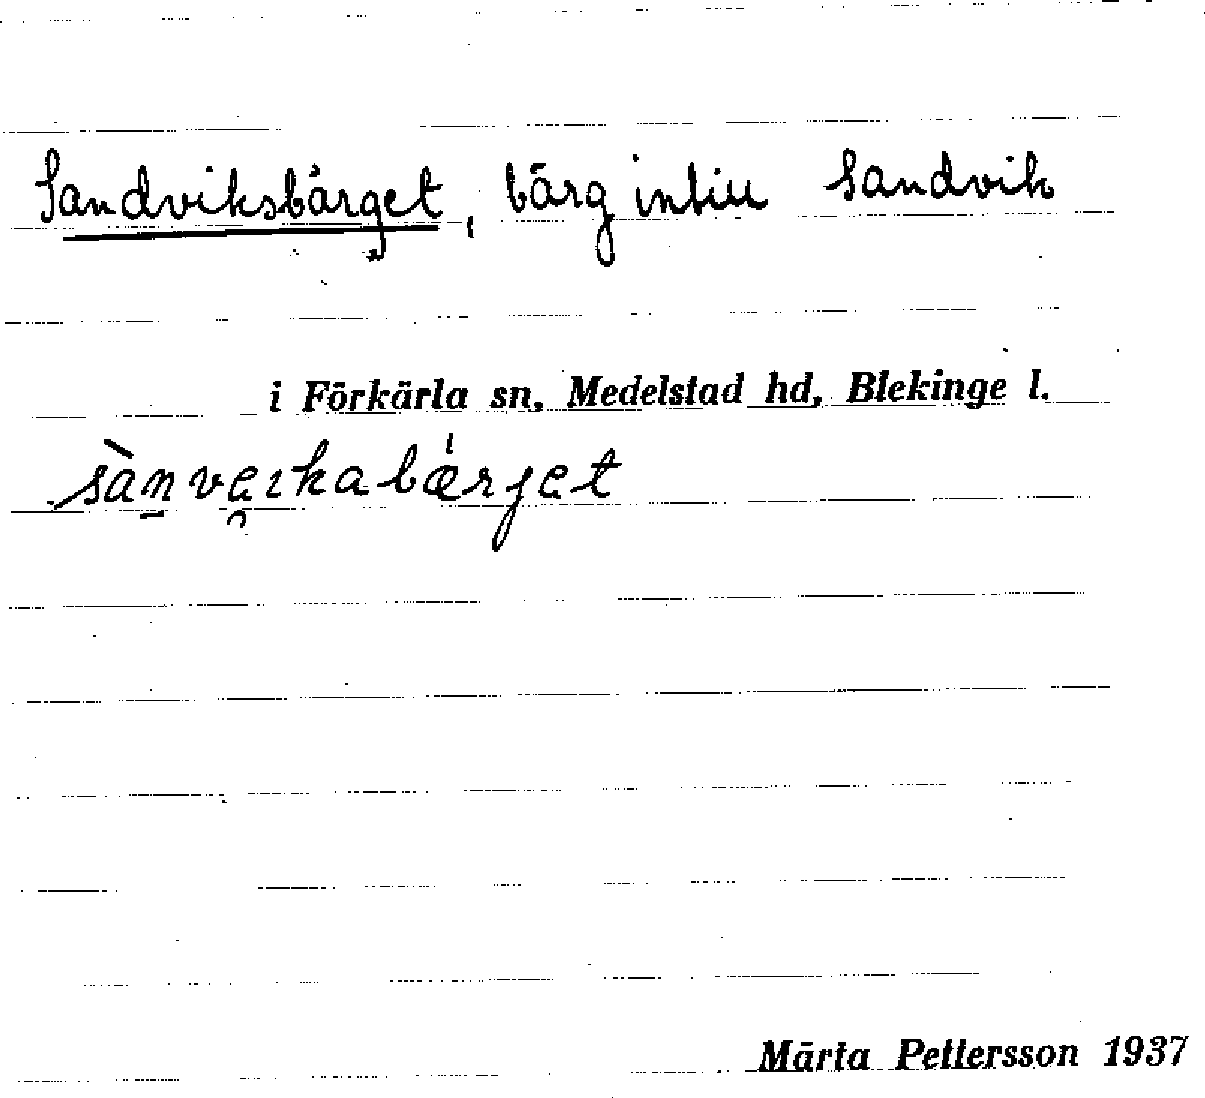 Sandviksbärget, bärg intill Sandvik
i Förkärla sn, Medelstad hd, Blekinge l.
sànveikabǽrjet
Märta Pettersson 1937